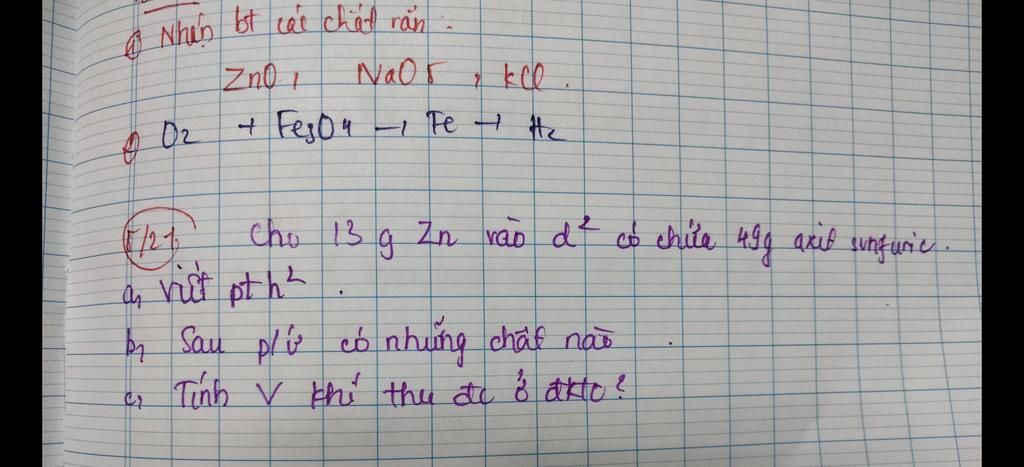 d, Nhận bt các chất rắn :
ZnO, NaOH, KCl.
e, O2 → Fe3O4 → Fe → H2
Cho 13 g Zn vào d² có chứa 49g axit sunfuric.
a, viết pt h² .
b, Sau p/ứ có những chất nào .
c, Tính V khí thu đc ở đktc?